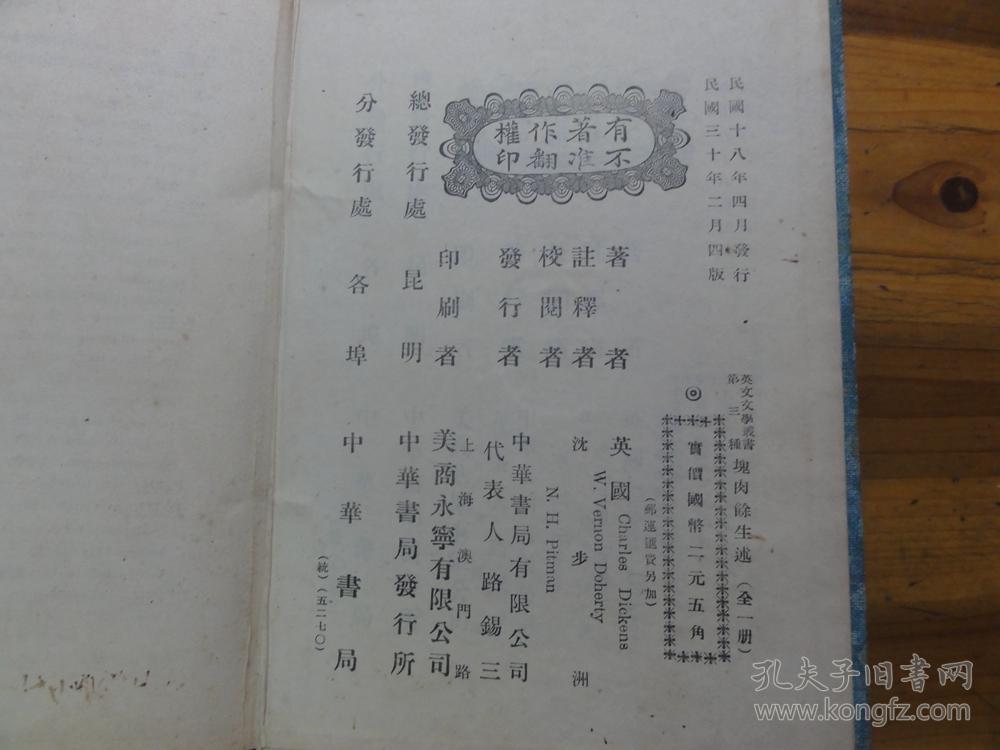 民國十八年四月發行
民國三十年二月四版
英文文學叢書
第三種
塊肉餘生述(全一冊)
◎實價國幣二元五角
(郵運匯費另加)
有著作權
不准翻印
著者 英國 Charles Dickens
註釋者 W. Vernon Doherty
沈步洲
校閱者 N. H. Pitman
發行者 中華書局有限公司
代表人路錫三
印刷者 上海澳門路
美商永寧有限公司
總發行處 昆明 中華書局發行所
分發行處 各埠 中華書局
(統)(五二七〇)
孔夫子旧书网
www.kongfz.com